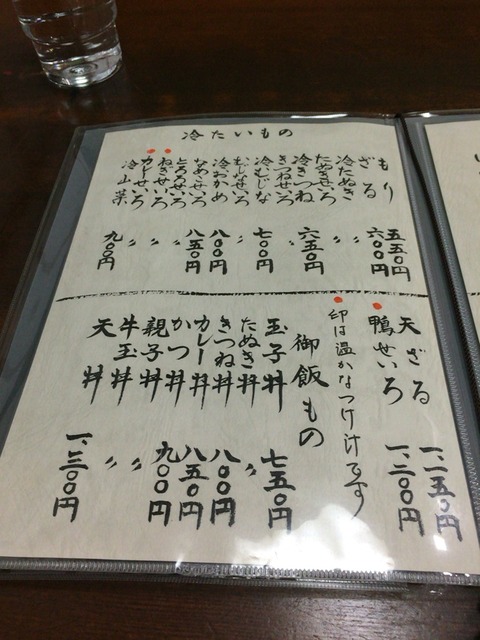 冷たいもの
もり 五五〇円
ざる 六〇〇円
冷たぬき 〃
たぬきせいろ 〃
冷きつね 六五〇円
きつねせいろ 〃
冷むじな 七〇〇円
むじなせいろ 〃
冷おかめ 八〇〇円
なめこせいろ 八五〇円
とろろせいろ 〃
ねぎせいろ 〃
カレーせいろ 〃
冷山菜 九〇〇円
天ざる 一、二五〇円
鴨せいろ 一、二〇〇円
印は温かなつけ汁です
御飯もの
玉子丼 七五〇円
たぬき丼 〃
きつね丼 八〇〇円
カレー丼 八五〇円
かつ丼 九〇〇円
親子丼 〃
牛玉丼 〃
天丼 一、三〇〇円